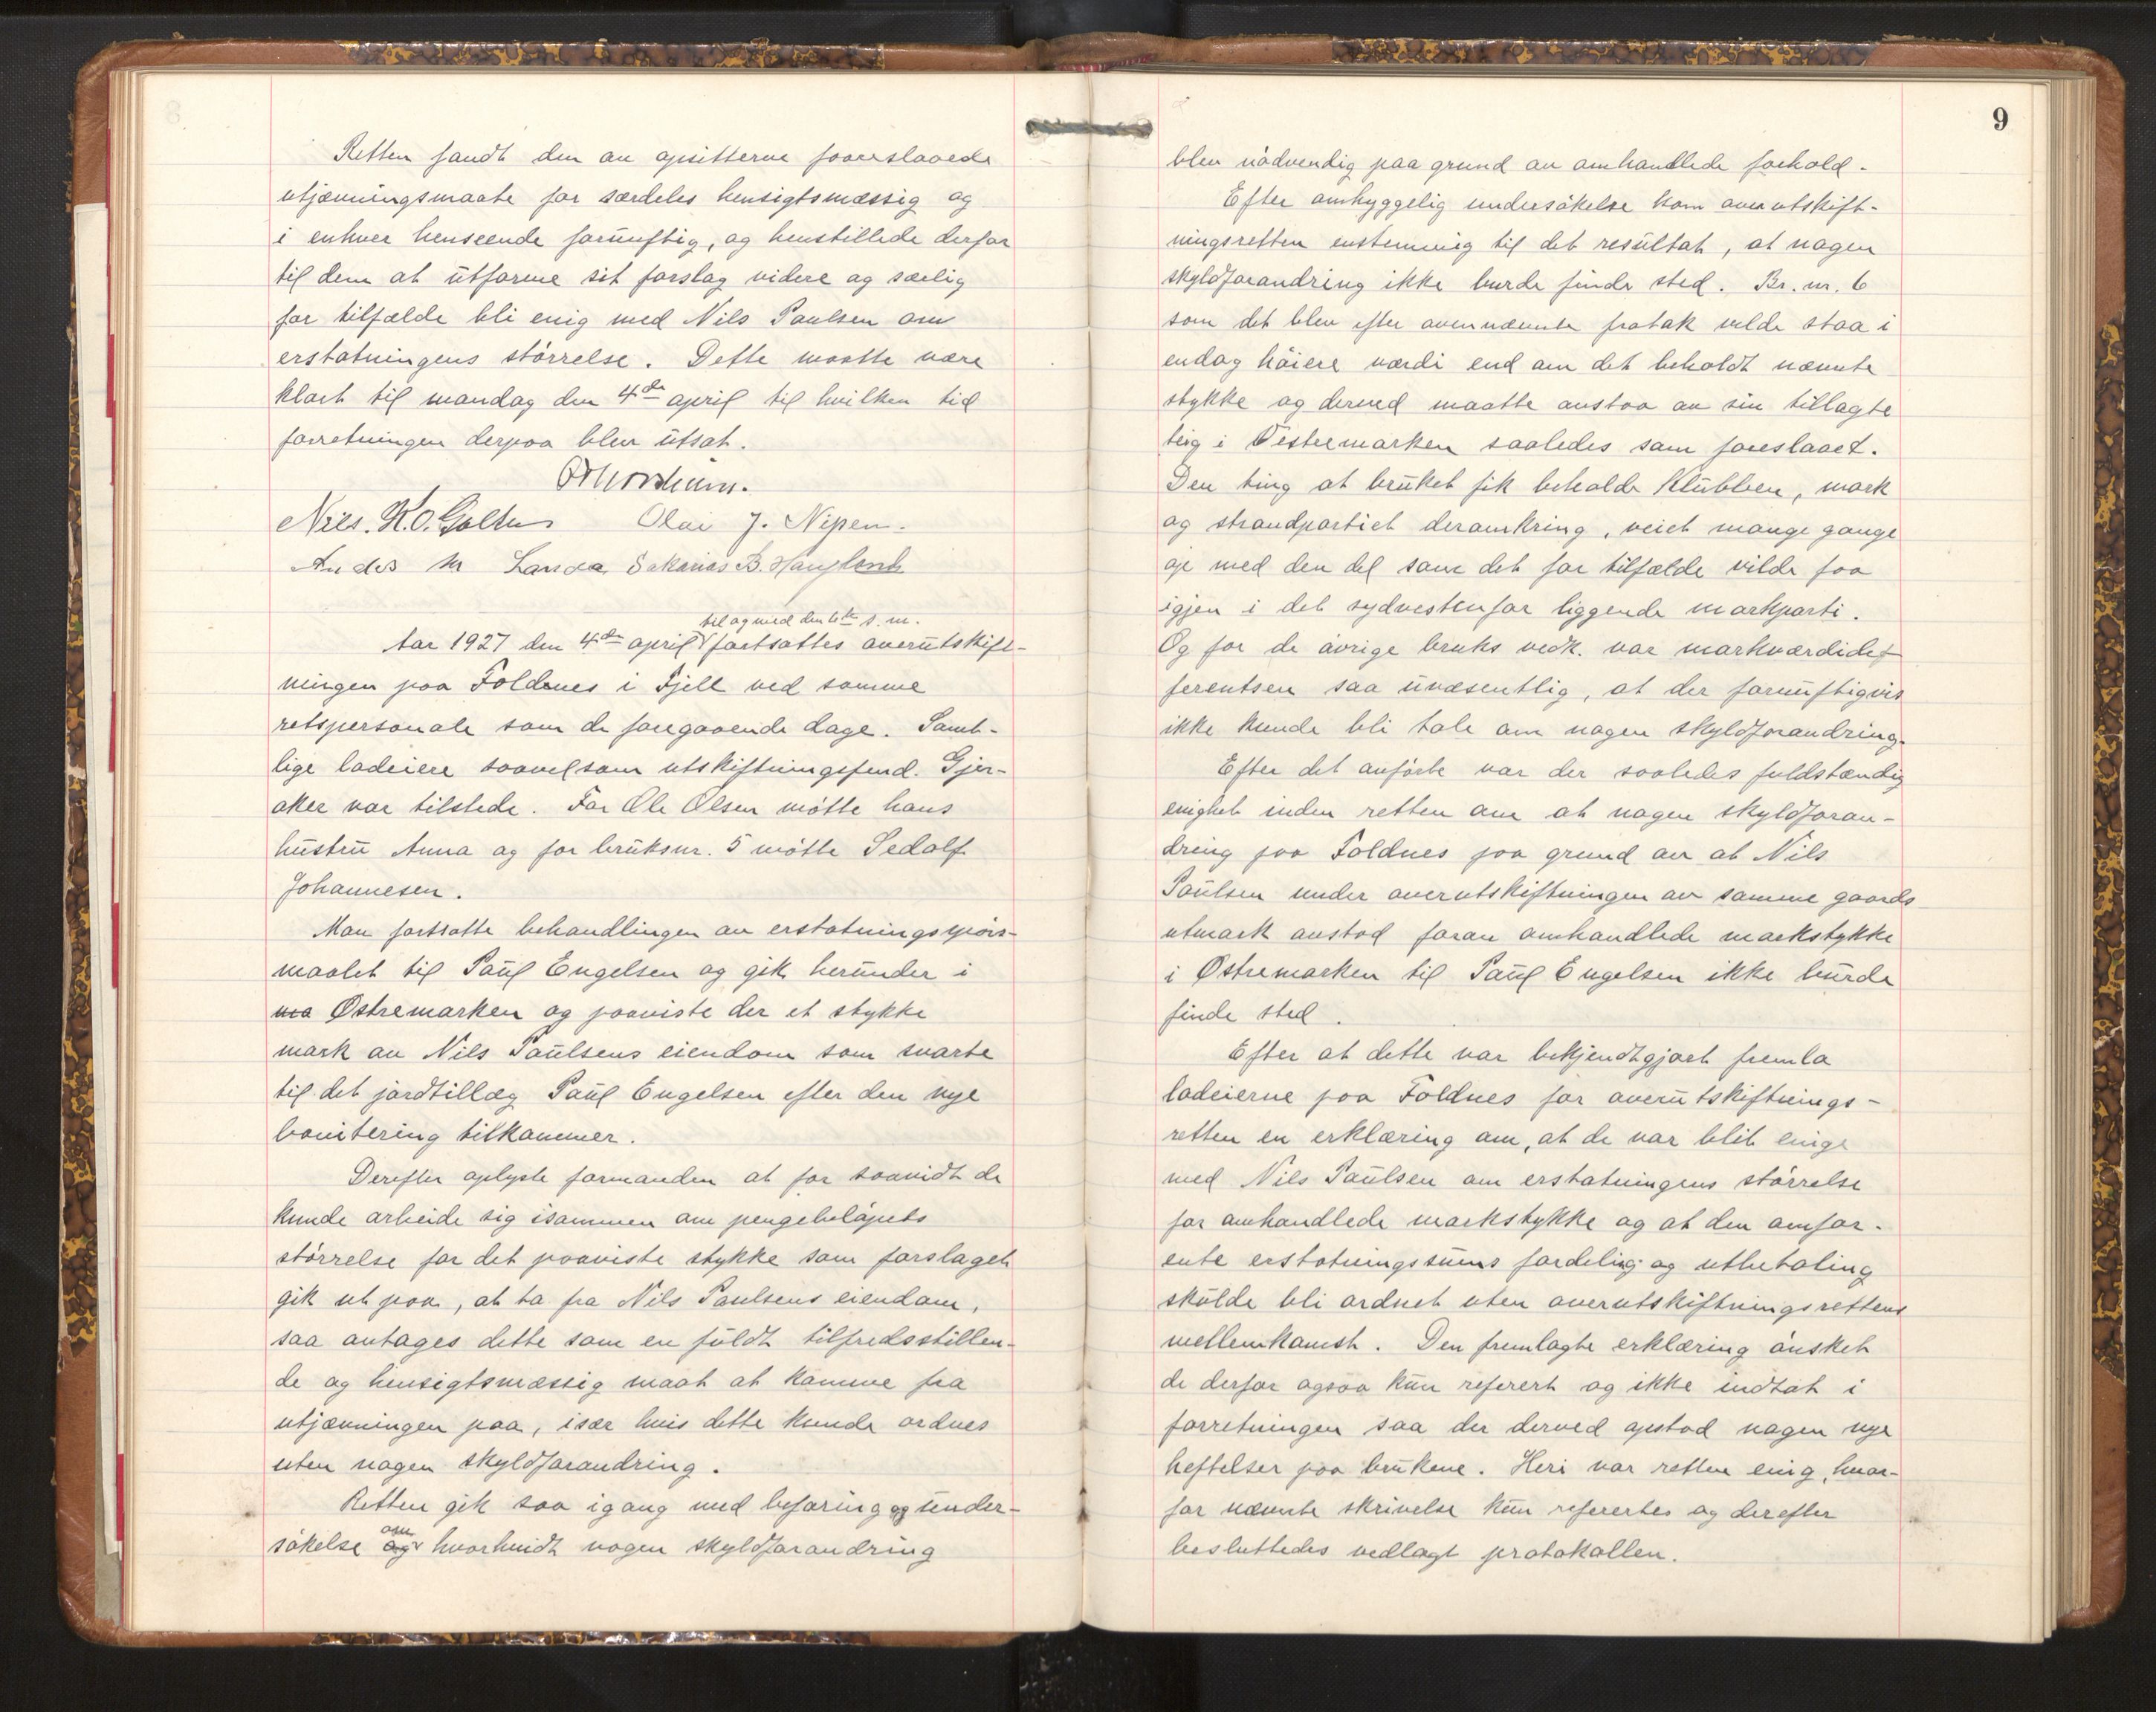 Retten fandt den av opsitterne foreslaaede
utjævningsmaate for særdeles hensigtsmæssig og
i enhver henseende fornuftig, og henstillede derfor
til dem at utforme sit forslag videre og særlig
for tilfælde bli enig med Nils Paulsen om
erstatningens störrelse. Dette maatte være
klart til mandag den 4de april til hvilken tid
forretningen derpaa blev utsat.
Nils. K.O. Golten Olai J. Nipen.
Anders M Landa Sakarias B. Haugland
til og med den 6te s. m.
Aar 1927 den 4de april fortsattes overutskift-
ningen paa Foldnes i Fjell ved samme
retspersonale som de foregaaende dage. Samt-
lige lodeiere saavelsom utskiftningsfuld. Gjer-
aker var tilstede. For Ole Olsen mötte hans
hustru Anna og for bruksnr. 5 mötte Sedolf
Johannesen.
Man fortsatte behandlingen av erstatningsspörs-
maalet til Paul Engelsen og gik herunder i
ma Østremarken og paaviste der et stykke
mark av Nils Paulsens eiendom som svarte
til det jordtillæg Paul Engelsen efter den nye
bonitering tilkommer.
Derefter oplyste formanden at for saavidt de
kunde arbeide sig isammen om pengebelöpets
störrelse for det paaviste stykke som forslaget
gik ut paa, at ta fra Nils Paulsens eiendom,
saa antages dette som en fuldt tilfredsstillen-
de og hensigtsmæssig maat at komme fra
utjævningen paa, især hvis dette kunde ordnes
uten nogen skyldforandring.
Retten gik saa igang med befaring og under-
om
sökelse og hvorhvidt nogen skyldforandring
9
blev nödvendig paa grund av omhandlede forhold.
Efter omhyggelig undersökelse kom overutskift-
ningsretten enstemmig til det resultat, at nogen
skyldforandring ikke burde finde sted. Br. nr. 6
som det blev efter overnævnte fratak vilde staa i
endog höiere værdi end om det beholdt nævnte
stykke og derved maatte avstaa av sin tillagte
teig i Vestremarken saaledes som foreslaaet.
Den ting at bruket fik beholde Klubben, mark
og strandpartiet deromkring, veiet mange gange
op med den del som det for tilfælde vilde faa
igjen i det sydvestenfor liggende markparti.
Og for de övrige bruks vedk. var markværdidif-
ferentsen saa uvæsentlig, at der fornuftigvis
ikke kunde bli tale om nogen skyldforandring.
Efter det anförte var der saaledes fuldstændig
enighet inden retten om at nogen skyldforan-
dring paa Foldnes paa grund av at Nils
Paulsen under overutskiftningen av samme gaards
utmark avstod foran omhandlede markstykke
i Østremarken til Paul Engelsen ikke burde
finde sted.
Efter at dette var bekjendtgjort fremla
lodeierne paa Foldnes for overutskiftnings-
retten en erklæring om, at de var blit enige
med Nils Paulsen om erstatningens störrelse
for omhandlede markstykke og at den omfor-
ente erstatningssums fordeling og utbetaling
skulde bli ordnet uten overutskiftningsrettens
mellemkomst. Den fremlagte erklæring önsket
de derfor ogsaa kun referert og ikke indtat i
forretningen saa der derved opstod nogen nye
heftelser paa brukene. Heri var retten enig, hvor-
for nævnte skrivelse kun refereretes og derefter
besluttedes vedlagt protokollen.